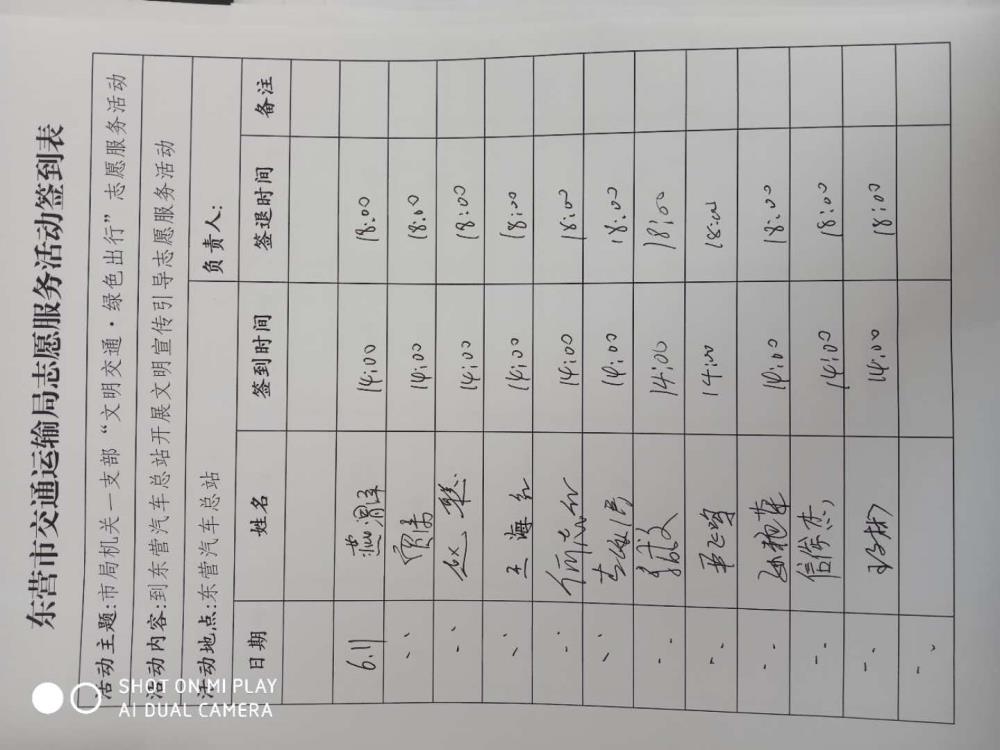 东营市交通运输局志愿服务活动签到表
活动主题:市局机关一支部“文明交通·绿色出行”志愿服务活动
活动内容:到东营汽车总站开展文明宣传引导志愿服务活动
活动地点:东营汽车总站 负责人:
日期 姓名 签到时间 签退时间 备注
6.11 14:00 18:00
〃 贾涛 14:00 18:00
〃 赵 14:00 18:00
〃 王海 14:00 18:00
〃 14:00 18:00
〃 14:00 18:00
〃 14:00 18:00
〃 14:00 18:00
〃 14:00 18:00
〃 信俊杰 14:00 18:00
〃 14:00 18:00
〃
SHOT ON MI PLAY
AI DUAL CAMERA